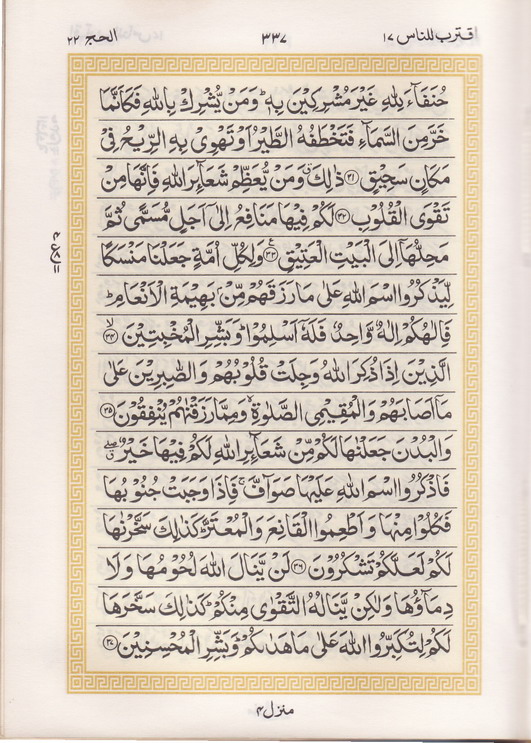 اقترب للناس ۱۷
۳۳۷
الحج ۲۲
حُنَفَآءَ لِلّٰهِ غَيْرَ مُشْرِكِيْنَ بِهٖ ؕ وَمَنْ يُّشْرِكْ بِاللّٰهِ فَكَاَنَّمَا
خَرَّ مِنَ السَّمَآءِ فَتَخْطَفُهُ الطَّيْرُ اَوْ تَهْوِىْ بِهِ الرِّيْحُ فِىْ
مَكَانٍ سَحِيْقٍ ۳۱ ذٰلِكَ ۗ وَمَنْ يُّعَظِّمْ شَعَآئِرَ اللّٰهِ فَاِنَّهَا مِنْ
تَقْوَى الْقُلُوْبِ ۳۲ لَكُمْ فِيْهَا مَنَافِعُ اِلٰٓى اَجَلٍ مُّسَمًّى ثُمَّ
مَحِلُّهَاۤ اِلَى الْبَيْتِ الْعَتِيْقِ ۳۳ وَلِكُلِّ اُمَّةٍ جَعَلْنَا مَنْسَكًا
لِّيَذْكُرُوا اسْمَ اللّٰهِ عَلٰى مَا رَزَقَهُمْ مِّنْۢ بَهِيْمَةِ الْاَنْعَامِ ؕ
فَاِلٰهُكُمْ اِلٰهٌ وَّاحِدٌ فَلَهٗۤ اَسْلِمُوْا ؕ وَبَشِّرِ الْمُخْبِتِيْنَ ۳۴
الَّذِيْنَ اِذَا ذُكِرَ اللّٰهُ وَجِلَتْ قُلُوْبُهُمْ وَالصّٰبِرِيْنَ عَلٰى
مَاۤ اَصَابَهُمْ وَالْمُقِيْمِى الصَّلٰوةِ ۙ وَمِمَّا رَزَقْنٰهُمْ يُنْفِقُوْنَ ۳۵
وَالْبُدْنَ جَعَلْنٰهَا لَكُمْ مِّنْ شَعَآئِرِ اللّٰهِ لَكُمْ فِيْهَا خَيْرٌ
فَاذْكُرُوا اسْمَ اللّٰهِ عَلَيْهَا صَوَآفَّ ۚ فَاِذَا وَجَبَتْ جُنُوْبُهَا
فَكُلُوْا مِنْهَا وَاَطْعِمُوا الْقَانِعَ وَالْمُعْتَرَّ ؕ كَذٰلِكَ سَخَّرْنٰهَا
لَكُمْ لَعَلَّكُمْ تَشْكُرُوْنَ ۳۶ لَنْ يَّنَالَ اللّٰهَ لُحُوْمُهَا وَلَا
دِمَآؤُهَا وَلٰكِنْ يَّنَالُهُ التَّقْوٰى مِنْكُمْ ؕ كَذٰلِكَ سَخَّرَهَا
لَكُمْ لِتُكَبِّرُوا اللّٰهَ عَلٰى مَا هَدٰىكُمْ ؕ وَبَشِّرِ الْمُحْسِنِيْنَ ۳۷
منزل ۴